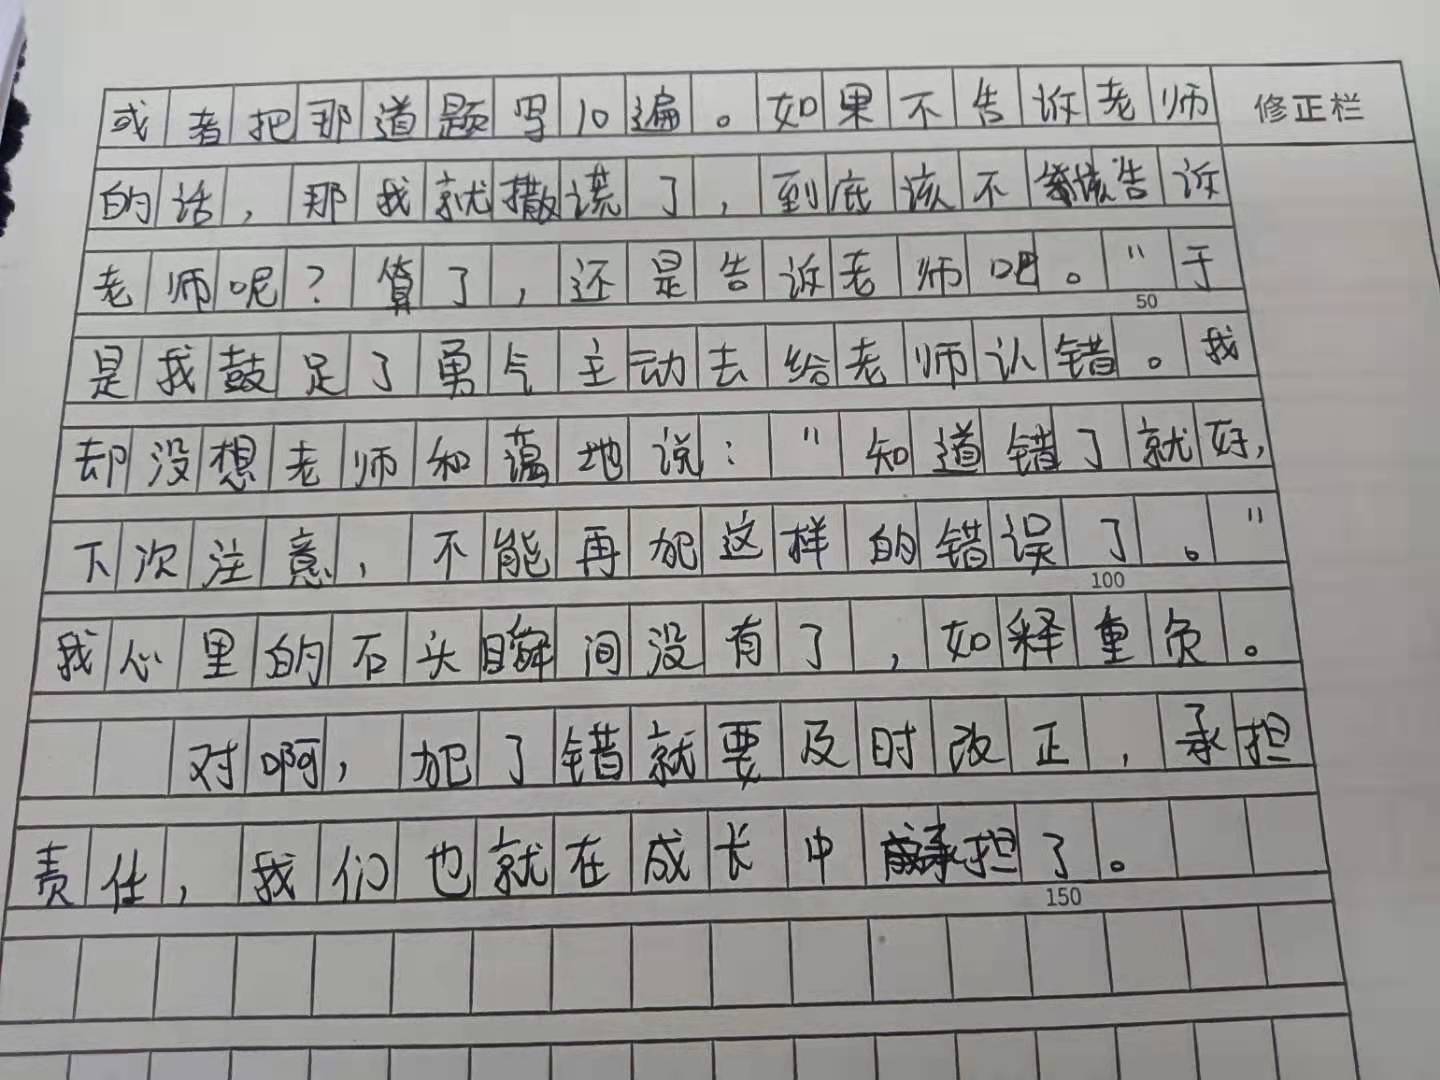 或者把那道题写10遍。如果不告诉老师
修正栏
的话，那我就撒谎了，到底该不该告诉
老师呢？算了，还是告诉老师吧。"于
50
是我鼓足了勇气主动去给老师认错。我
却没想老师和蔼地说："知道错了就好，
下次注意，不能再犯这样的错误了。"
100
我心里的石头瞬间没有了，如释重负。
对啊，犯了错就要及时改正，承担
责任，我们也就在成长中承担了。
150